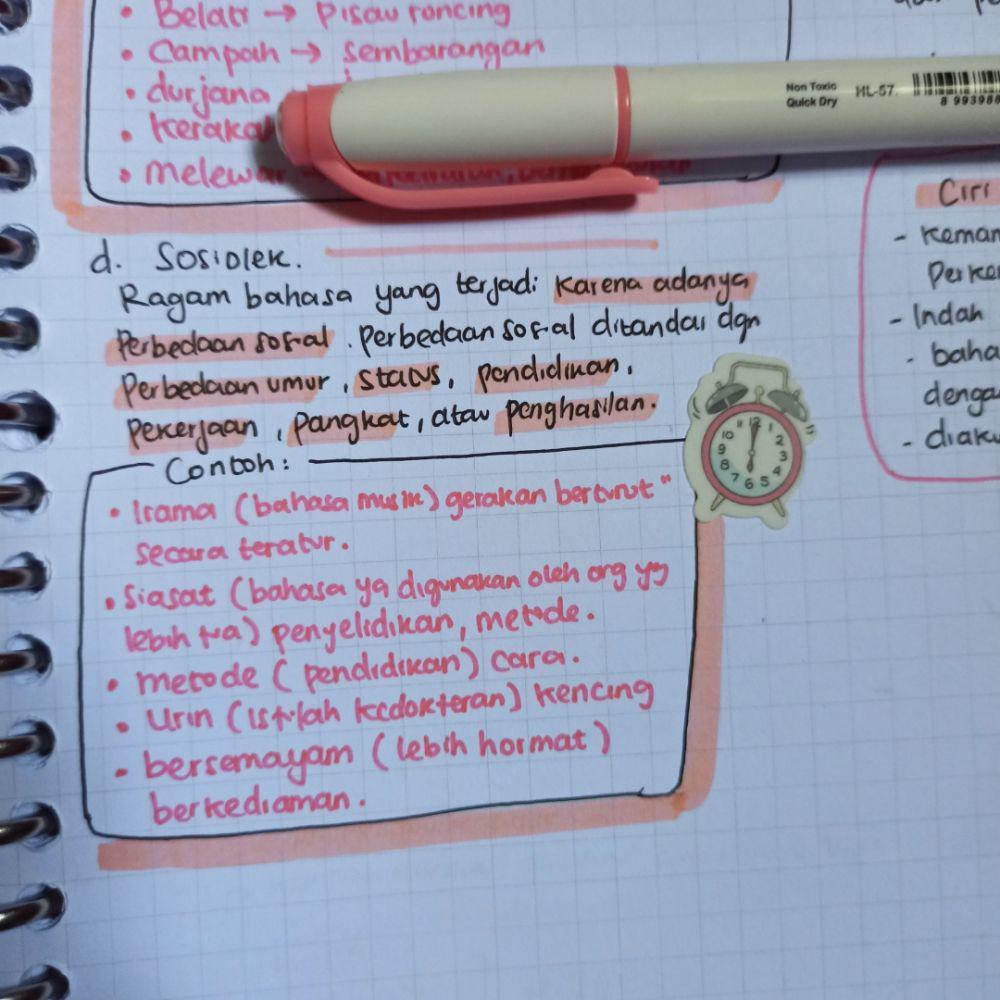 • Belati → Pisau roncing
• Campah → sembarangan
• durjana
• keraka
• melewar
Non Toxic
Quick Dry
HL-57.
8 993988
d. Sosiolek.
Ragam bahasa yang terjadi karena adanya
Perbedaan sosial. Perbedaan sosial ditandai dgn
Perbedaan umur, status, pendidikan,
Pekerjaan, pangkat, atau penghasilan.
Contoh:
• Irama (bahasa musik) gerakan berturut"
secara teratur.
• Siasat (bahasa yg digunakan oleh org yg
lebih tua) penyelidikan, metode.
• metode (pendidikan) cara.
• Urin (istilah kedokteran) kencing
• bersemayam (lebih hormat)
berkediaman.
12 1 2 3 4 5 6 7 8 9 10 11
Ciri
- Keman
Perke
- Indah
- baha
denga
- diaku